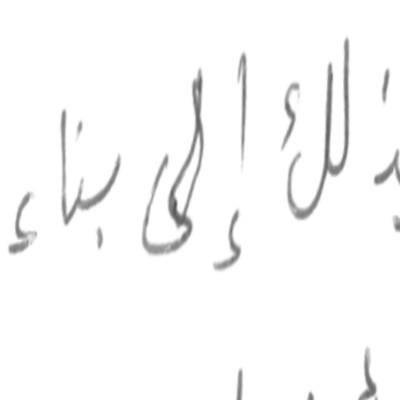 ذلك إلى بناء